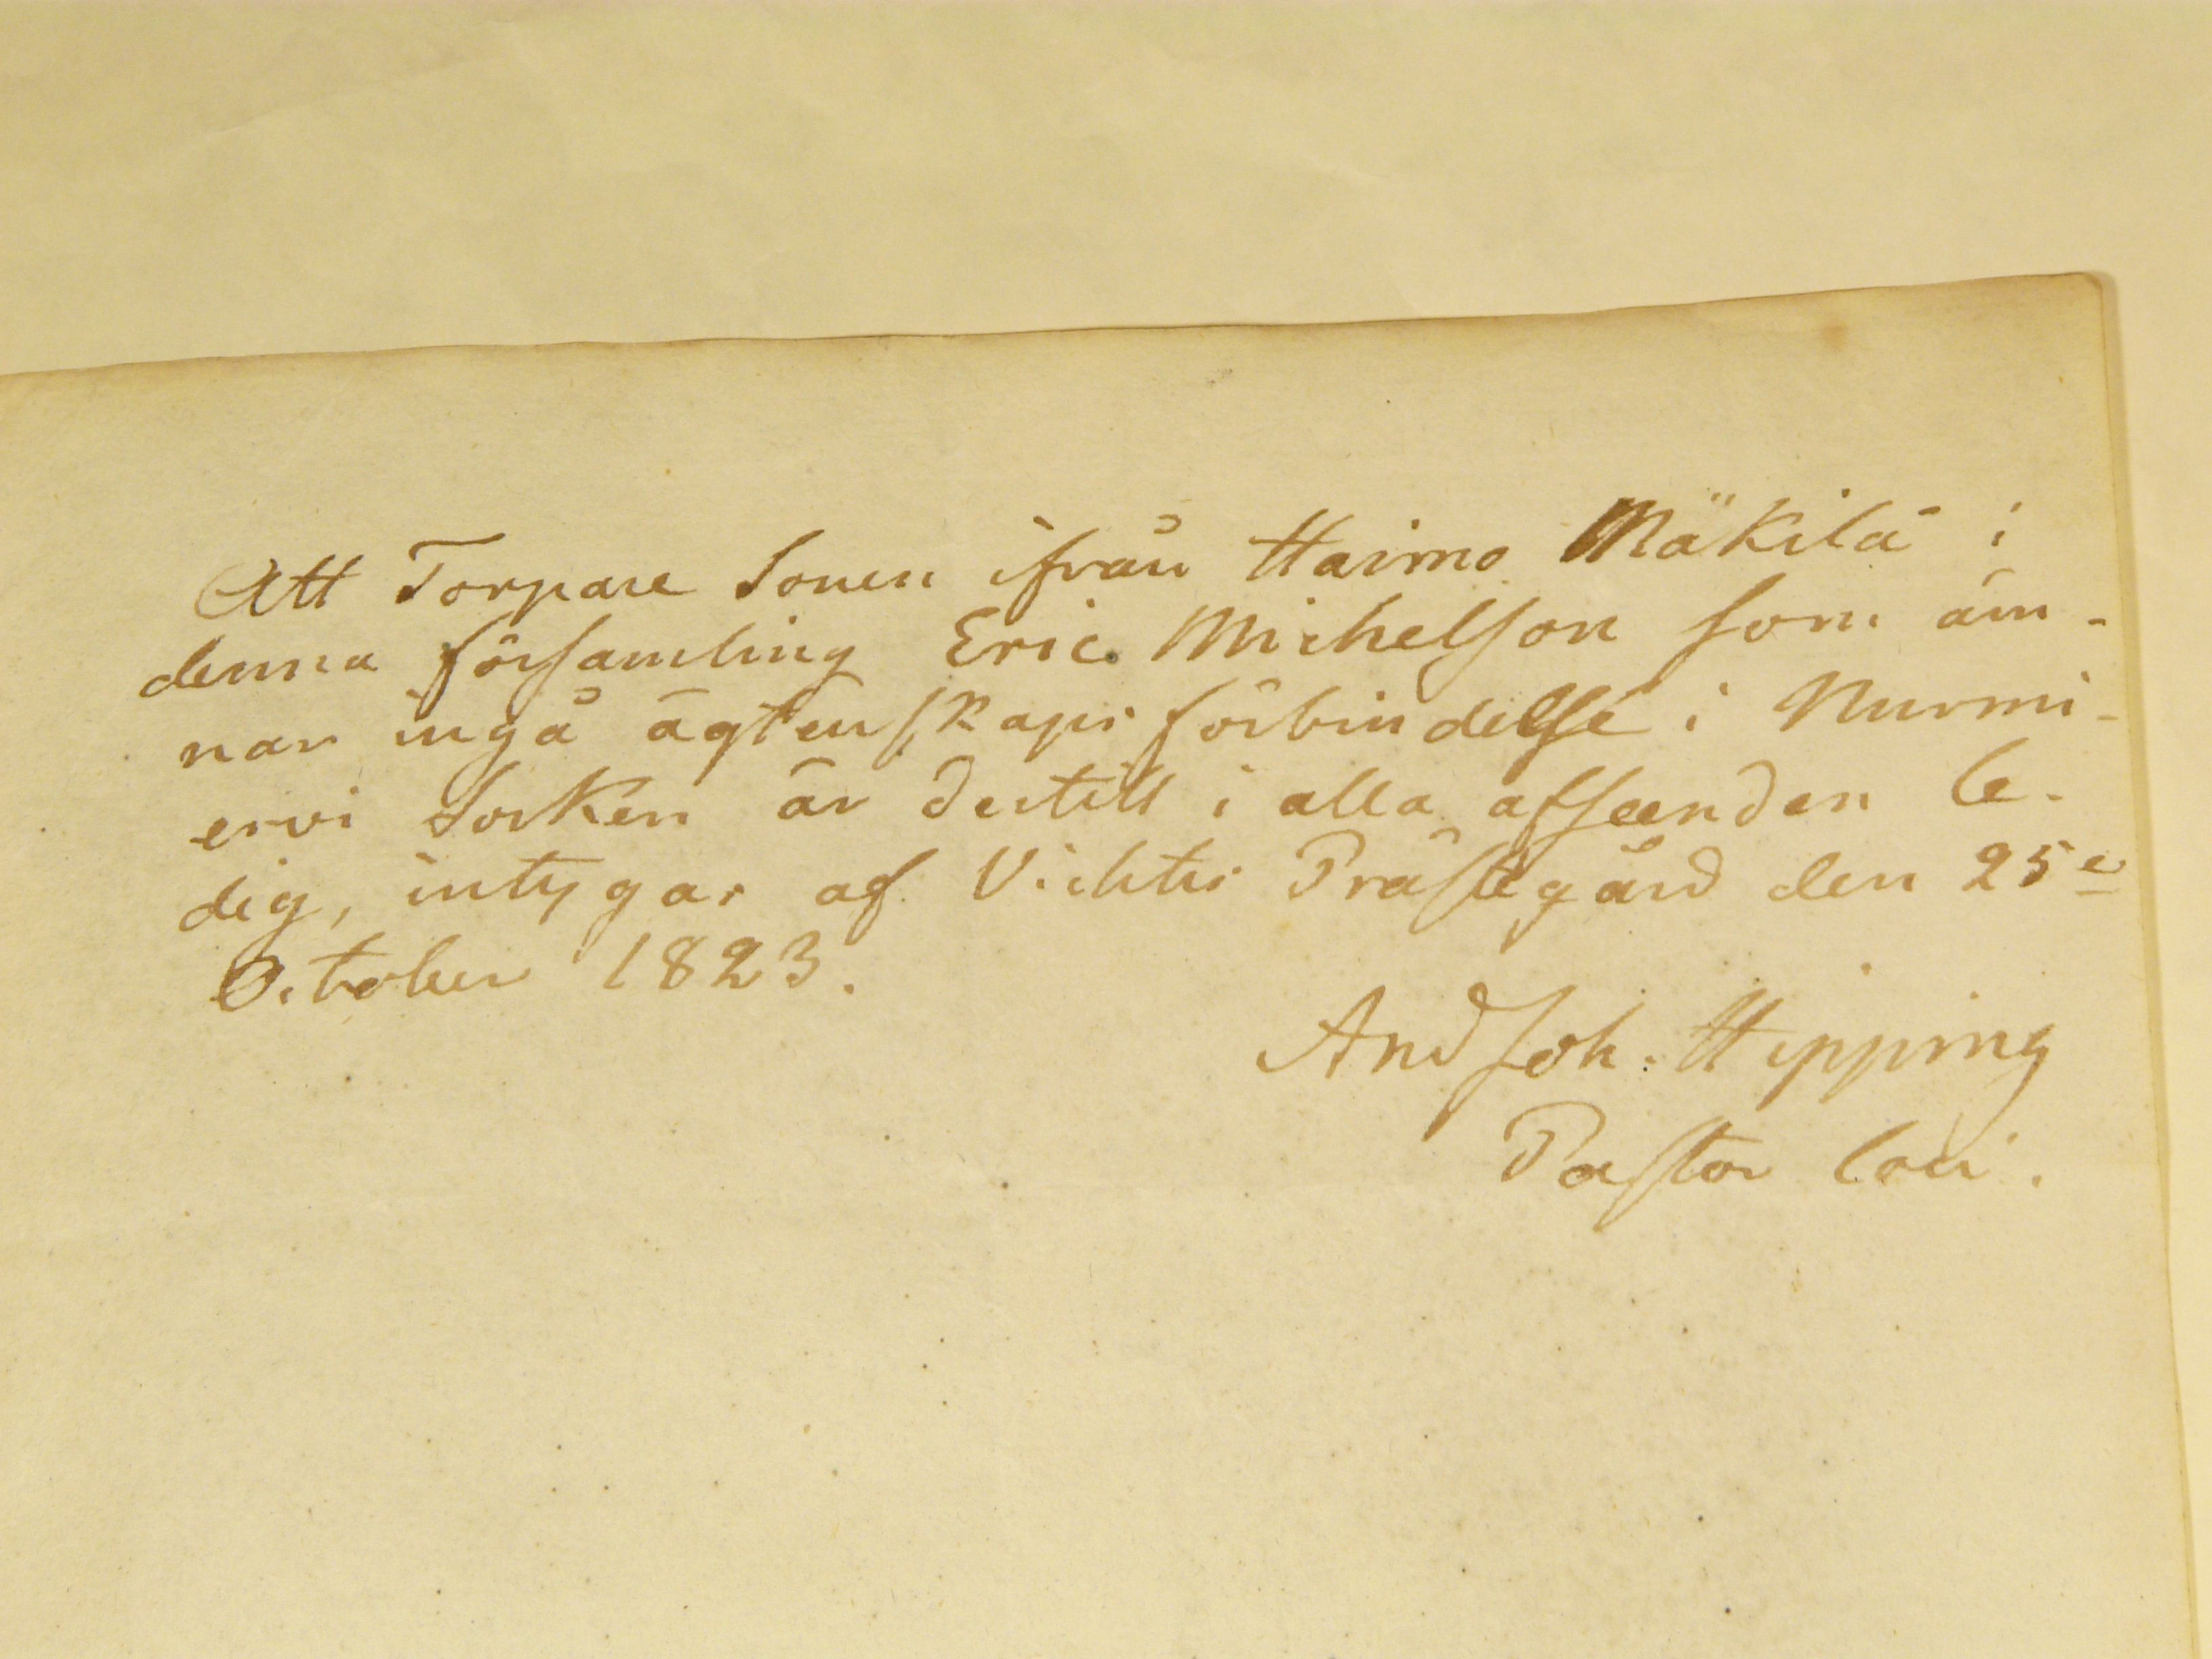 Att Torpare Sonen ifrån Haimo Mäkilä i
denna församling Eric Michelson som äm-
nar ingå ägtenskaps förbindelse i Nurmi-
ervi Socken är dertill i alla afseenden le-
dig, intygar af Vichtis Prästegård den 25e
October 1823.
And Joh: Hipping
Pastor loci.